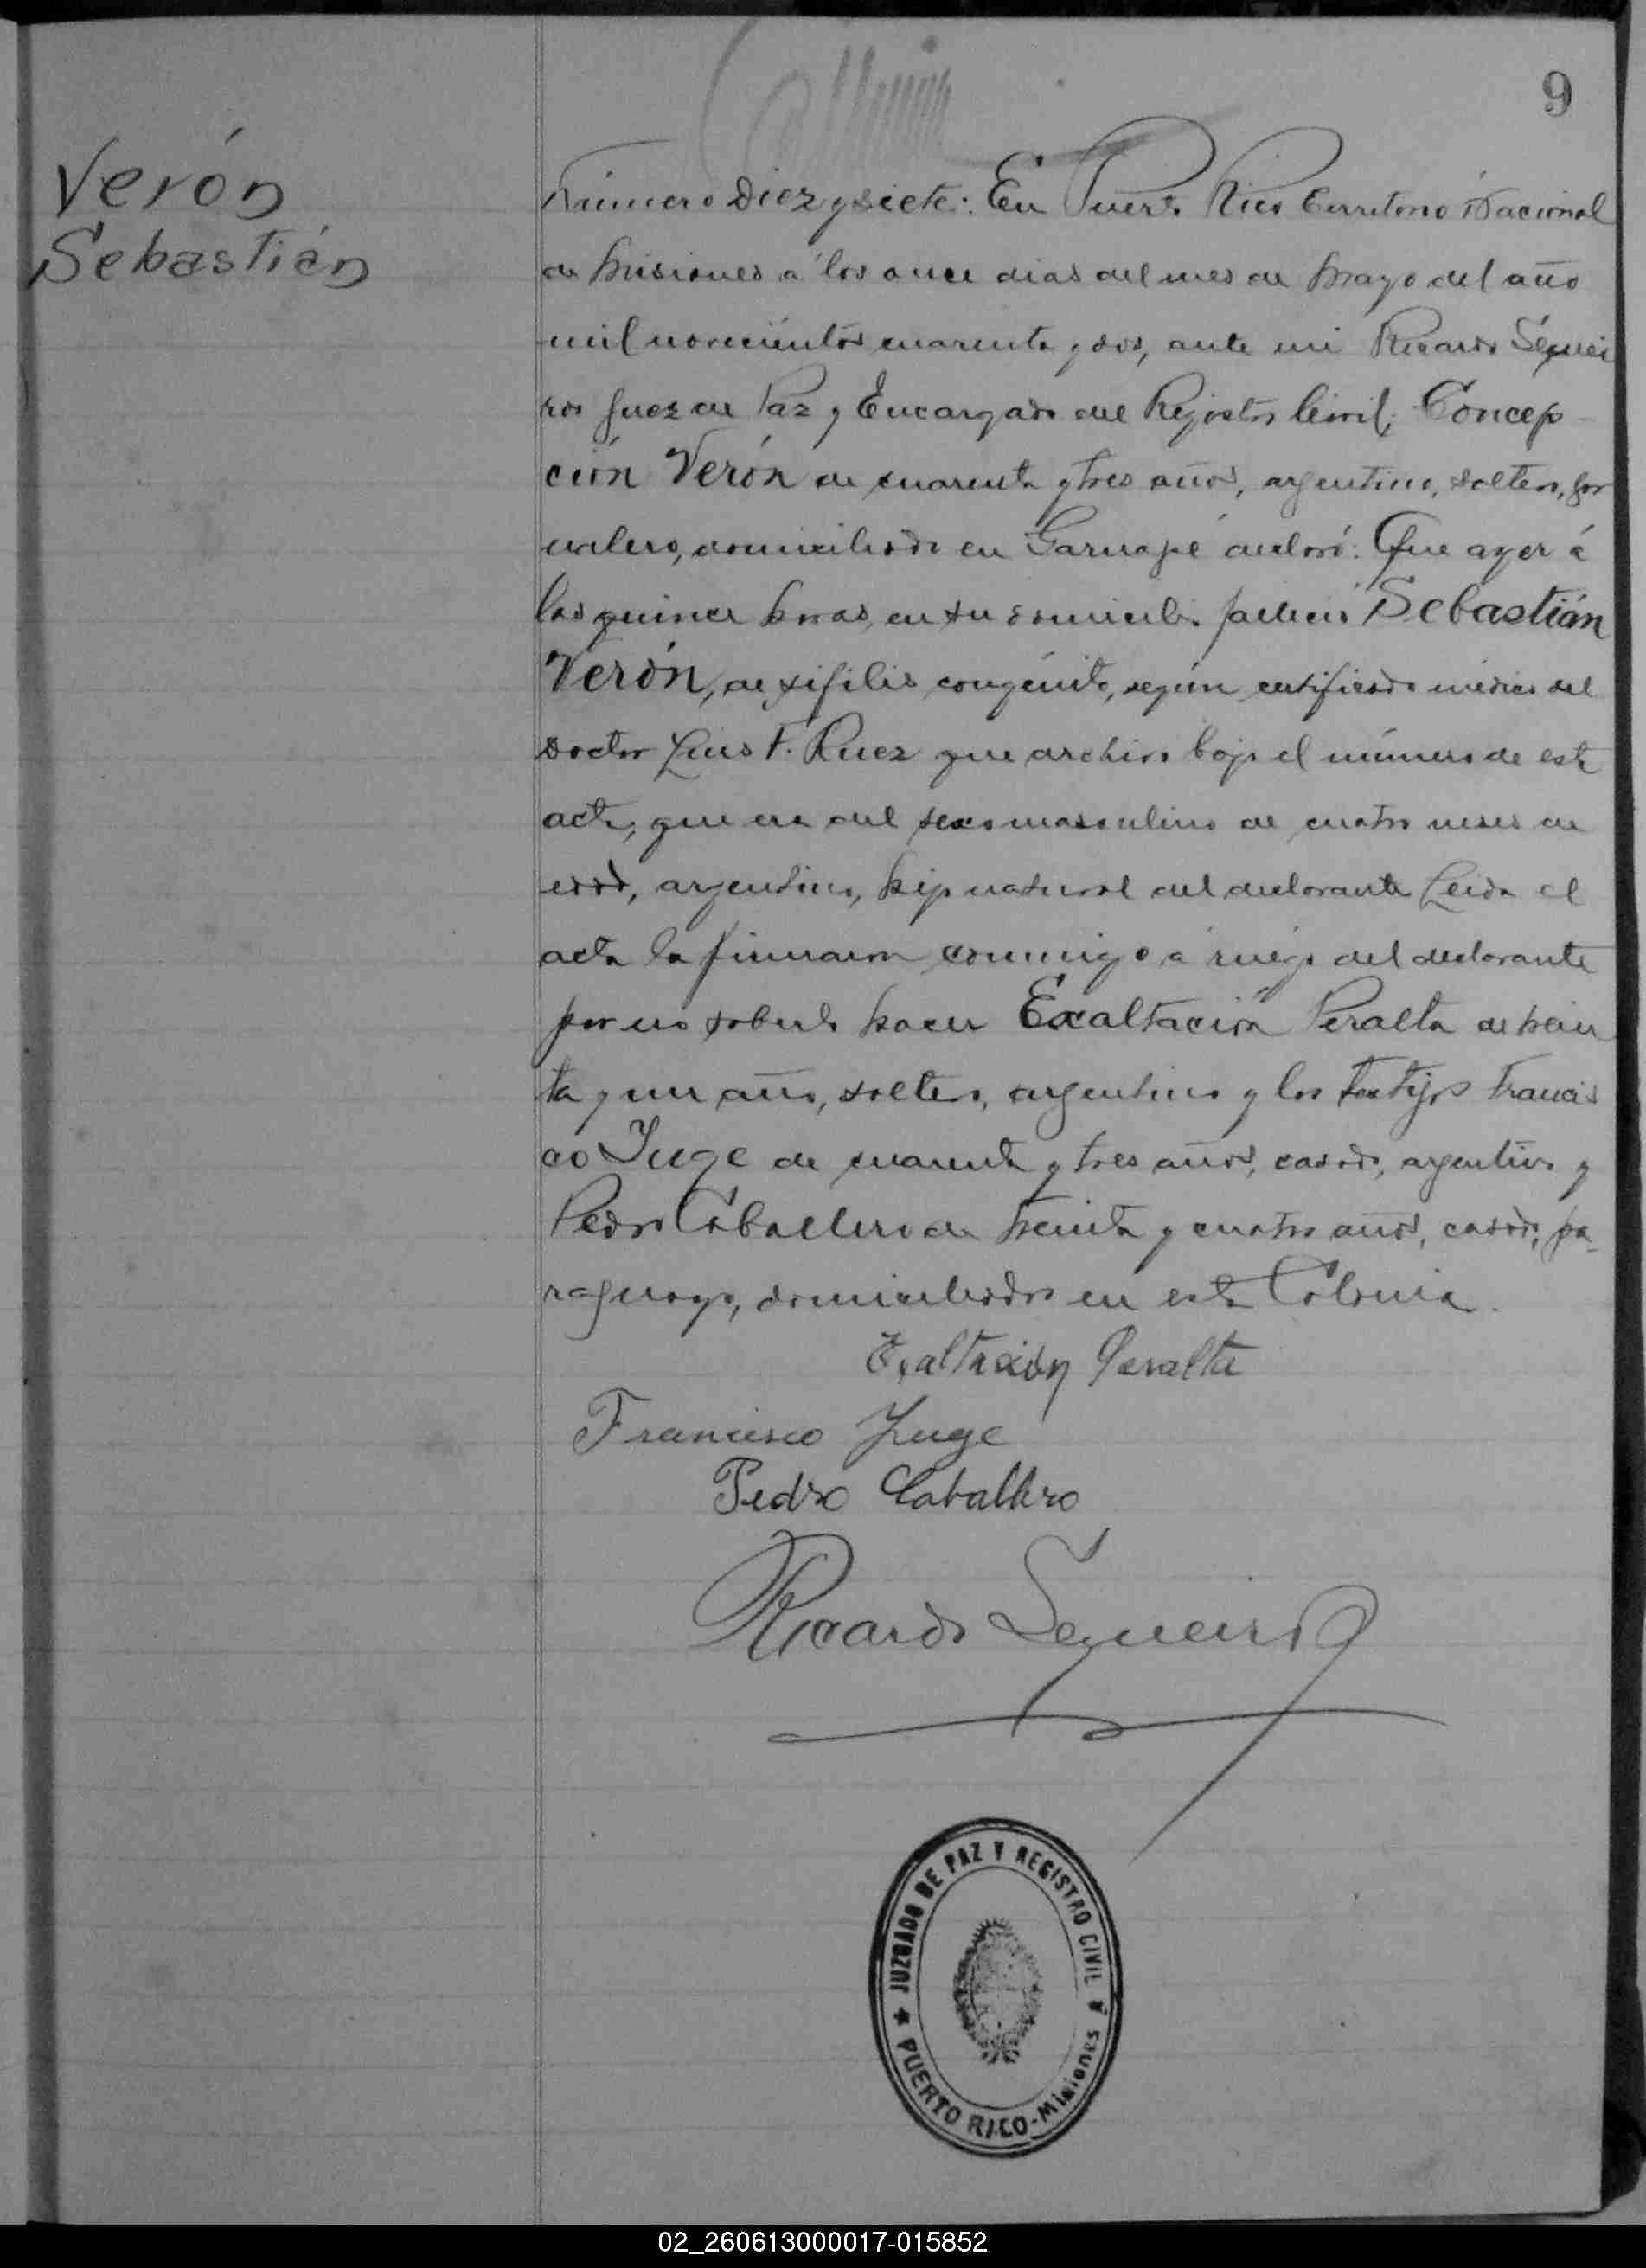 9
Verón
Sebastián
Número Diez y siete: En Puerto Rico Territorio Nacional
de Misiones á los once dias del mes de Mayo del año
mil novecientos cuarenta y dos, ante mi Ricardo Sequei
ros Juez de Paz y Encargado del Registro Civil; Concep
ción Verón de cuarenta y tres años, argentino, soltero, jor
nalero, domiciliado en Garuapé declaró: Que ayer á
las quince horas, en su domicilio falleció Sebastián
Verón, de sífilis congénita, según certificado médico del
Doctor Luis F. Ruez que archivo bajo el número de esta
acta, que era del sexo masculino de cuatro meses de
edad, argentino, hijo natural del declarante Leida el
acta la firmaron conmigo á ruego del declarante
por no saberlo hacer Exaltación Peralta de trein
ta y un año, soltero, argentino y los testigos Francis
co Juge de cuarenta y tres años, casado, argentino y
Pedro Caballero de treinta y cuatro años, casado, pa-
raguayo, domiciliados en esta Colonia.
Exaltación Peralta
Francisco Juge
Pedro Caballero
Ricardo Sequeiros
JUZGADO DE PAZ Y REGISTRO CIVIL
PUERTO RICO-Misiones
02_260613000017-015852